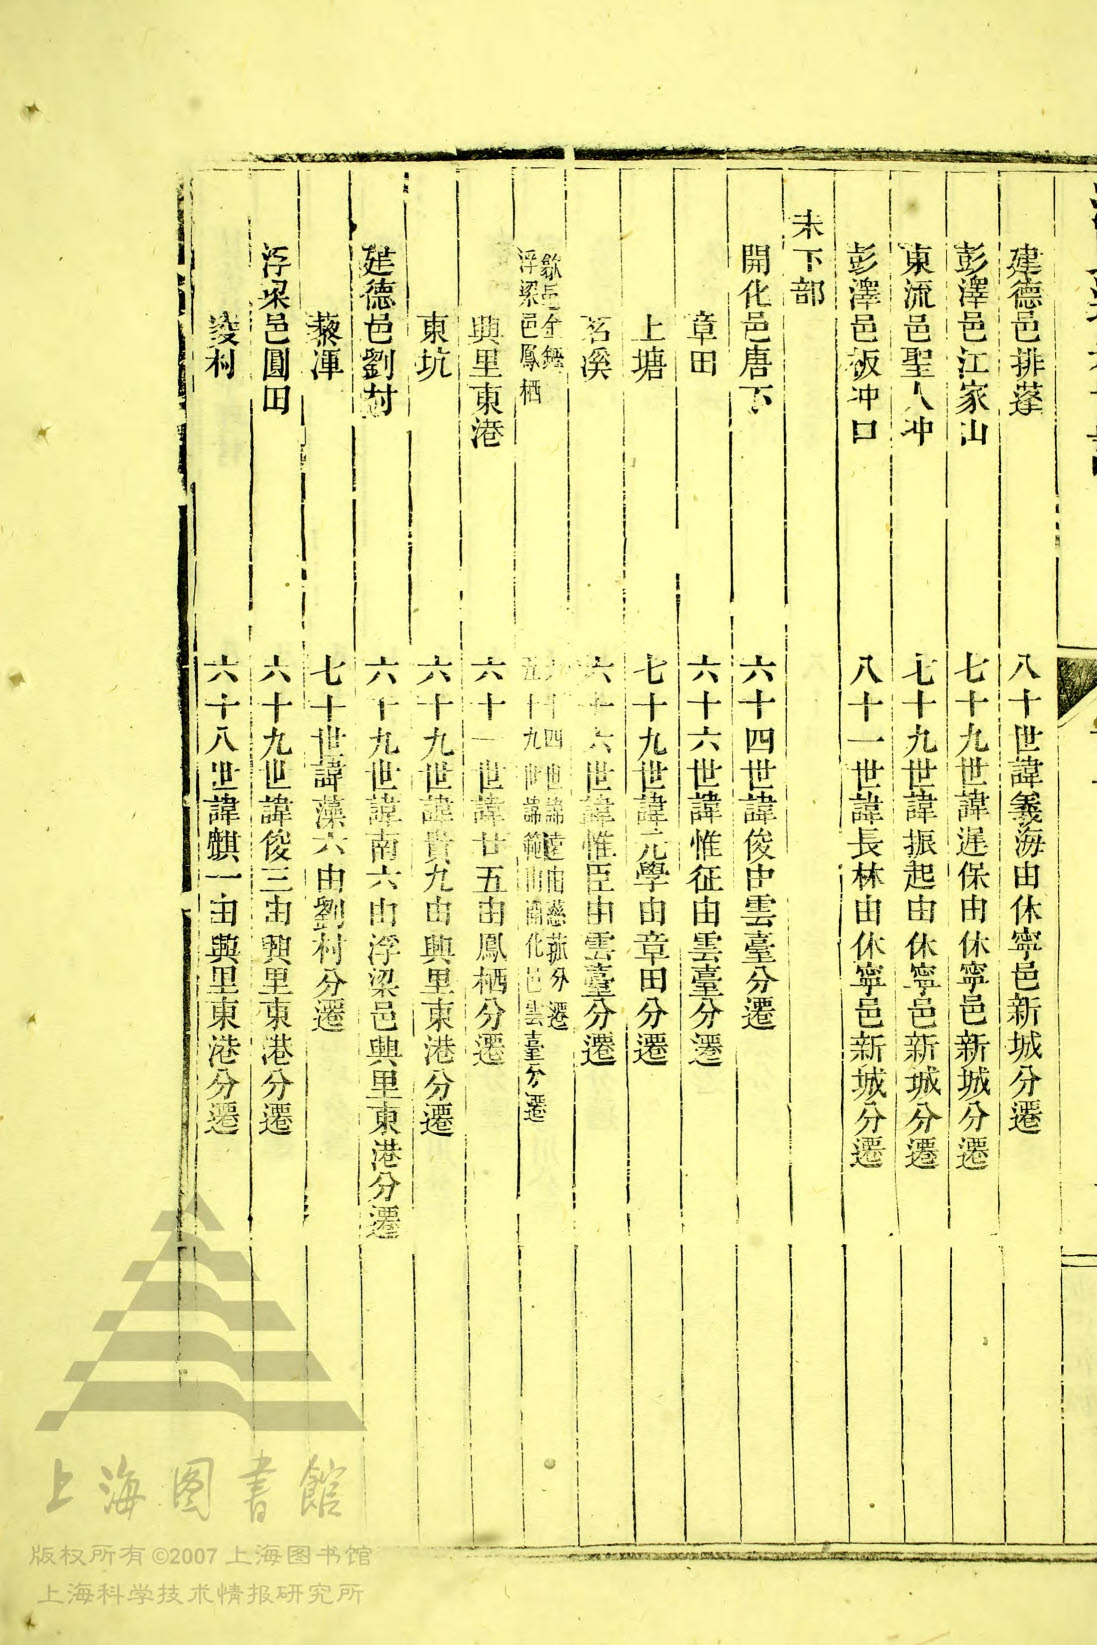 建德邑排蓬 八十世諱義海由休寧邑新城分遷
彭澤邑江家山 七十九世諱遅保由休寧邑新城分遷
東流邑聖人冲 七十九世諱振起由休寧邑新城分遷
彭澤邑板冲口 八十一世諱長林由休寧邑新城分遷
未下部
開化邑唐下 六十四世諱俊由雲臺分遷
章田 六十六世諱惟征由雲臺分遷
上塘 七十九世諱元學由章田分遷
茗溪 六十六世諱惟臣由雲臺分遷
歙邑金 六十四世諱遠由慈菰分遷
浮梁邑鳳栖 五十九世諱範由開化邑雲臺分遷
興里東港 六十一世諱廿五由鳳栖分遷
東坑 六十九世諱貴九由興里東港分遷
建德邑劉村 六十九世諱南六由浮梁邑興里東港分遷
藜渾 七十世諱藻六由劉村分遷
浮梁邑圓田 六十九世諱俊三由興里東港分遷
夌村 六十八世諱麒一由興里東港分遷
上海图書館
版权所有©2007上海图书馆
上海科学技术情报研究所